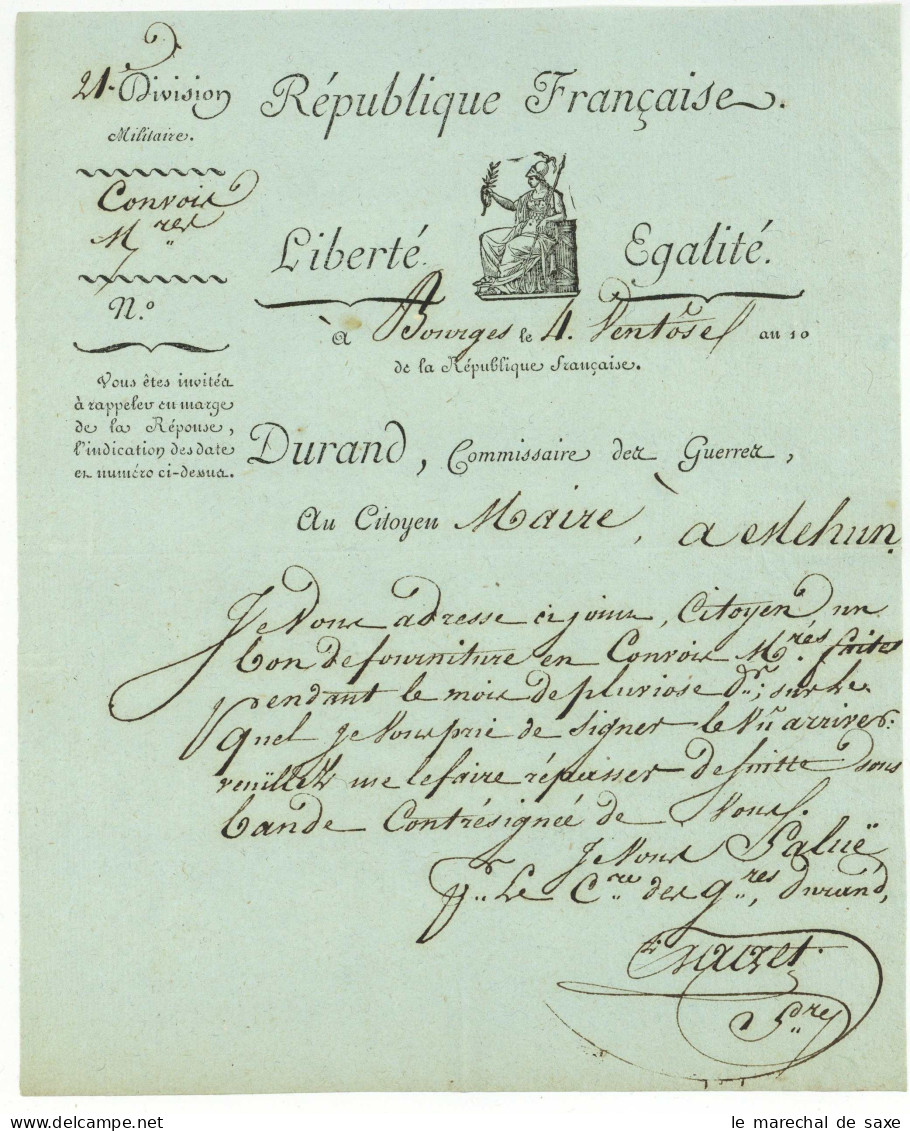 21.e Division
Militaire.
Convois
M.res
N.o
Vous êtes invités
à rappeler en marge
de la Réponse,
l'indication des date
et numéro ci-dessus.
République Française.
Liberté. Egalité.
à Bourges le 4. Ventôse an 10
de la République française.
Durand, Commissaire des Guerres,
Au Citoyen Maire, à Mehun.
Je Vous adresse ci joint, Citoyen un
bon de fourniture en Convois M.res faites
pendant le mois de pluviose d.er; sur le
quel je Vous prie de signer le Vû arriver.
veüillez me le faire répasser de suitte sous
bande Contrésignée de Vous.
Je Vous Salüe
p.r Le C.re des g.res, Durand,
S.re
le marechal de saxe